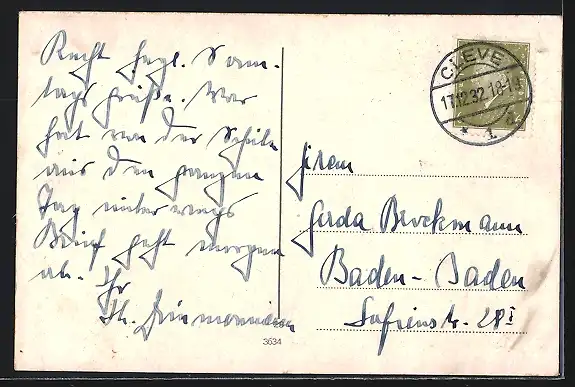 Recht herzl. Sonn-
tags grüße. War
hat von der Schule
aus den ganzen
Tag unterwegs
Brief geht morgen
ab. Ihr
Th.
CLEVE
17.12.32.18-19
* 1
Frau
Gerda Brockmann
Baden-Baden
Sofienstr. 28I
3634